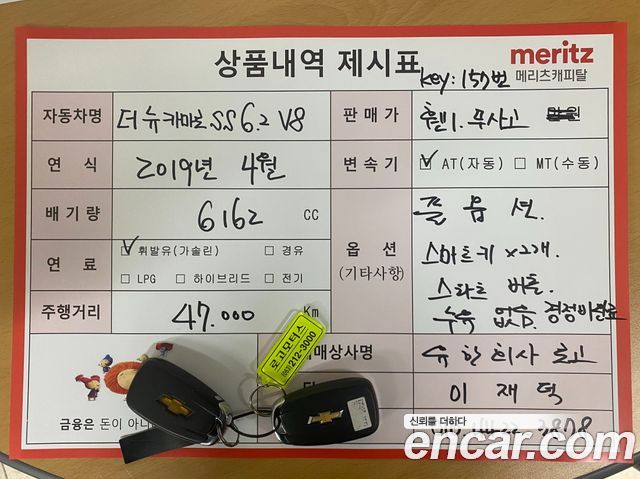 상품내역 제시표
meritz
메리츠캐피탈
key: 157번
자동차명 더 뉴 카마로 SS 6.2 V8
판매가 무사고
연 식 2019년 4월
변속기 AT(자동) MT(수동)
배기량 6162 CC
옵 션
(기타사항)
풀 옵 션.
스마트키 x2개.
스타트 버튼.
누유 없음.
연 료 휘발유(가솔린) 경유
LPG 하이브리드 전기
주행거리 47.000 Km
매상사명 유한회사 로고
이재덕
로고모터스
(063) 212-3000
금융은 돈이 아니
신뢰를 더하다
encar.com